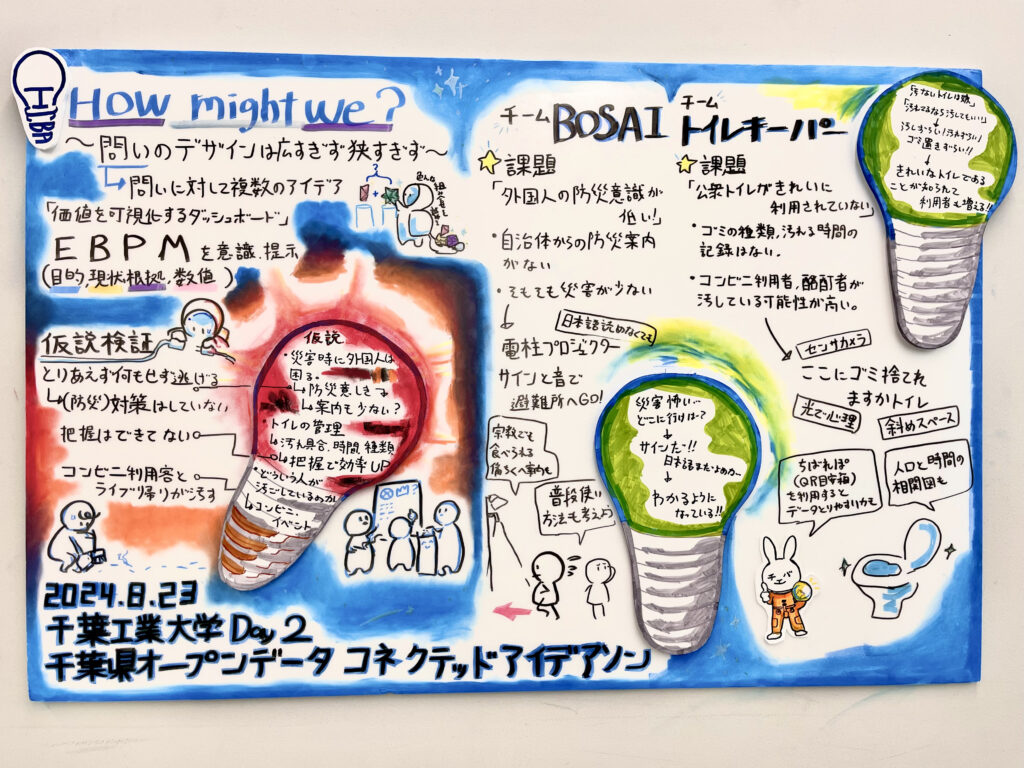 How might we?
〜問いのデザインは広すぎず狭すぎず〜
問いに対して複数のアイデア
「価値を可視化するダッシュボード」
EBPMを意識、提示
(目的,現状,根拠,数値)
仮説検証
とりあえず何もせず逃げる
(防災)対策はしていない
把握はできてない
コンビニ利用客と
ライブ帰りが汚す
仮説
・災害時に外国人は
困る。
・トイレの管理
汚れ具合、時間、種類
把握で効率UP
・どういう人が
汚ごしているのか
コンビニ、
イベント
2024.8.23
千葉工業大学 Day2
千葉県オープンデータ コネクテッドアイデアソン
チーム BOSAI
課題
「外国人の防災意識が
低い!」
・自治体からの防災案内
がない
・そもそも災害が少ない
日本語読めなくても
電柱プロジェクター
サインと音で
避難所へGO!
宗教でも
食べられる
普段使い
方法も考えよう
災害怖い…
どこに行けば?
サインだ!!
わかるように
なっている!!
チーム
トイレキーパー
課題
「公衆トイレがきれいに
利用されていない」
・ゴミの種類,汚れる時間の
記録はない。
・コンビニ利用者,酩酊者が
汚している可能性が高い。
センサカメラ
ここにゴミ捨てれ
ますかトイレ
光で心理
斜めスペース
ちばれぽ
を利用すると
データとりやすいかも
人口と時間の
相関図も
汚ないトイレは嫌
「汚れてるなら汚してもいい!」
汚しずらい!汚れずらい!
ゴミ置きずらい!!
きれいなトイレである
ことが知られて
利用者も増える!!